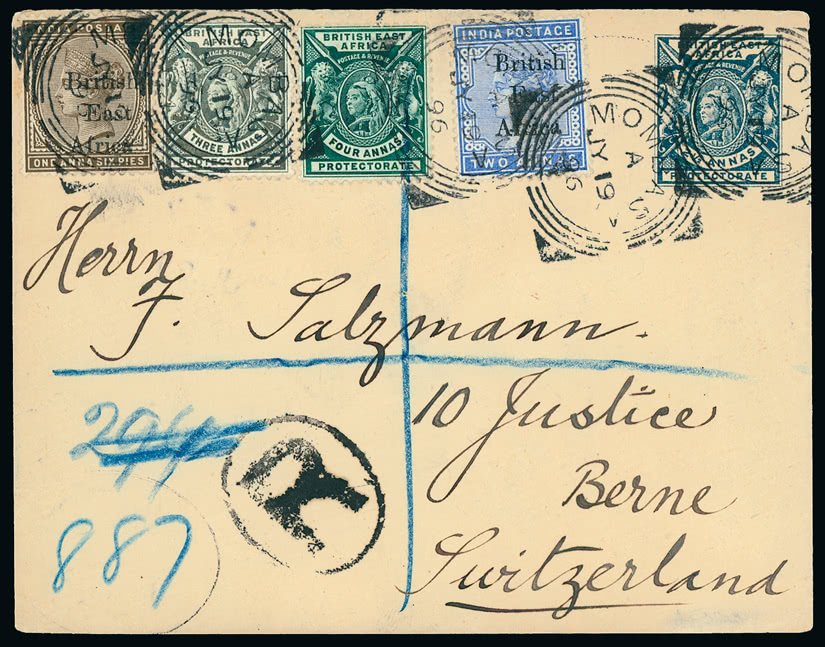 INDIA POSTAGE
British
East
Africa
ONE ANNA SIX PIES
BRITISH EAST
AFRICA
POSTAGE & REVENUE
THREE ANNAS
PROTECTORATE
BRITISH EAST
AFRICA
POSTAGE & REVENUE
FOUR ANNAS
PROTECTORATE
INDIA POSTAGE
British
East
Africa
TWO
BRITISH EAST
AFRICA
ANNAS
PROTECTORATE
MOMBASA
A
JY 19
96
MOMBASA
A
Herrn
F. Salzmann.
10 Justice
Berne
Switzerland
R
887